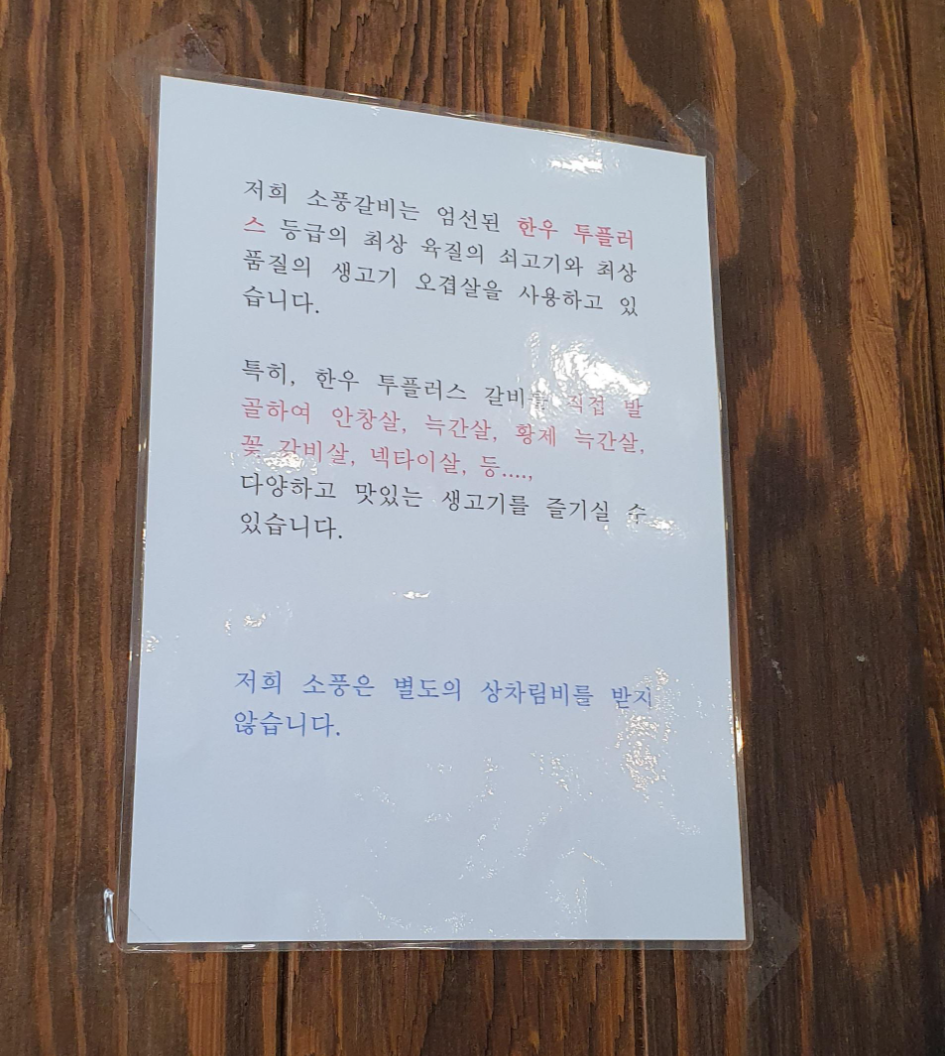 저희 소풍갈비는 엄선된 한우 투플러
스 등급의 최상 육질의 쇠고기와 최상
품질의 생고기 오겹살을 사용하고 있
습니다.
특히, 한우 투플러스 갈비를 직접 발
골하여 안창살, 늑간살, 황제 늑간살,
꽃 갈비살, 넥타이살, 등....,
다양하고 맛있는 생고기를 즐기실 수
있습니다.
저희 소풍은 별도의 상차림비를 받지
않습니다.